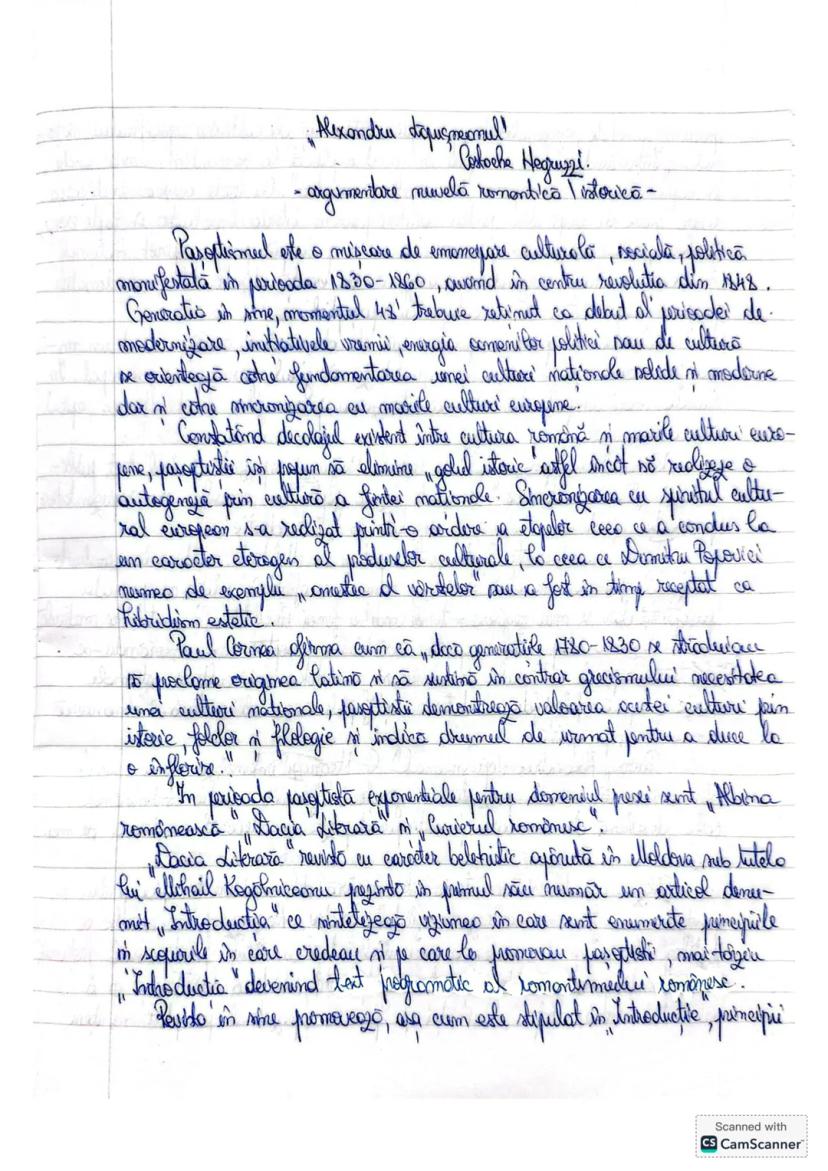 „Alexandru Lăpușneanul"
Costache Negruzzi.
- argumentare nuvelă romantică / istorică -
Pașoptismul este o mișcare de emancipare culturală, socială, politică
manifestată în perioada 1830-1860, având în centru revoluția din 1848.
Generația în sine, momentul 48' trebuie reținut ca debut al perioadei de
modernizare, inițiativele vremii, energia oamenilor politici sau de cultură
se orientează către fundamentarea unei culturi naționale solide și moderne
dar și către sincronizarea cu marile culturi europene.
Constatând decalajul existent între cultura română și marile culturi euro-
pene, pașoptiștii își propun să elimine „golul istoric" astfel încât să realizeze o
autogeneză prin cultură a ființei naționale. Sincronizarea cu spiritul cultu-
ral european s-a realizat printr-o ardere a etapelor ceea ce a condus la
un caracter eterogen al produselor culturale, la ceea ce Dumitru Popovici
numea de exemplu „amestec al vârstelor" sau a fost în timp receptat ca
hibridism estetic.
Paul Cornea afirma cum că „dacă generațiile 1780-1830 se străduiau
să proclame originea latină și să susțină în contrar grecismului necesitatea
unei culturi naționale, pașoptiștii demonstrează valoarea acestei culturi prin
istorie, folclor și filologie și indică drumul de urmat pentru a duce la
o înflorire."
În perioada pașoptistă exponențiale pentru domeniul presei sunt „Albina
românească" „Dacia Literară" și „Curierul românesc".
„Dacia Literară" revistă cu caracter beletristic apărută în Moldova sub tutela
lui Mihail Kogălniceanu prezintă în primul său număr un articol denu-
mit „Introducția" ce sintetizează viziunea în care sunt enumerate principiile
și scopurile în care credeau și pe care le promovau pașoptiștii, mai târziu
„Introducția" devenind text programatic al romantismului românesc.
Revista în sine promovează, așa cum este stipulat în „Introducție", principii
Scanned with
CS CamScanner